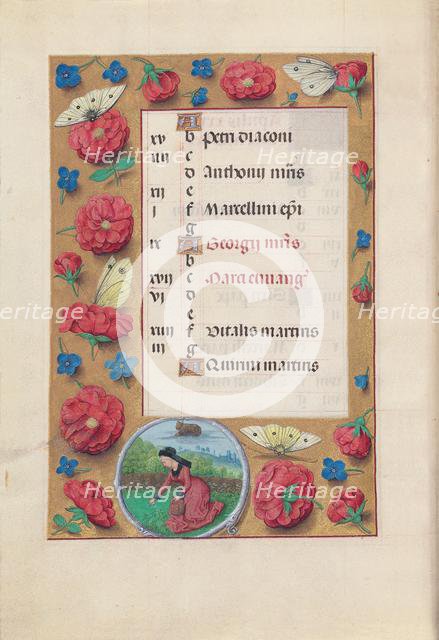 A
xv b Petri diaconi
iiij c
d Anthonij mris
xij e
j f Marcellini epi
g
ix A Georgij mris
b
xvij c Marci euuang
vj d
e
xiiij f Vitalis martiris
iij g
A Quirini martiris
Heritage Heritage
Heritage Heritage Heritage
Heritage Heritage